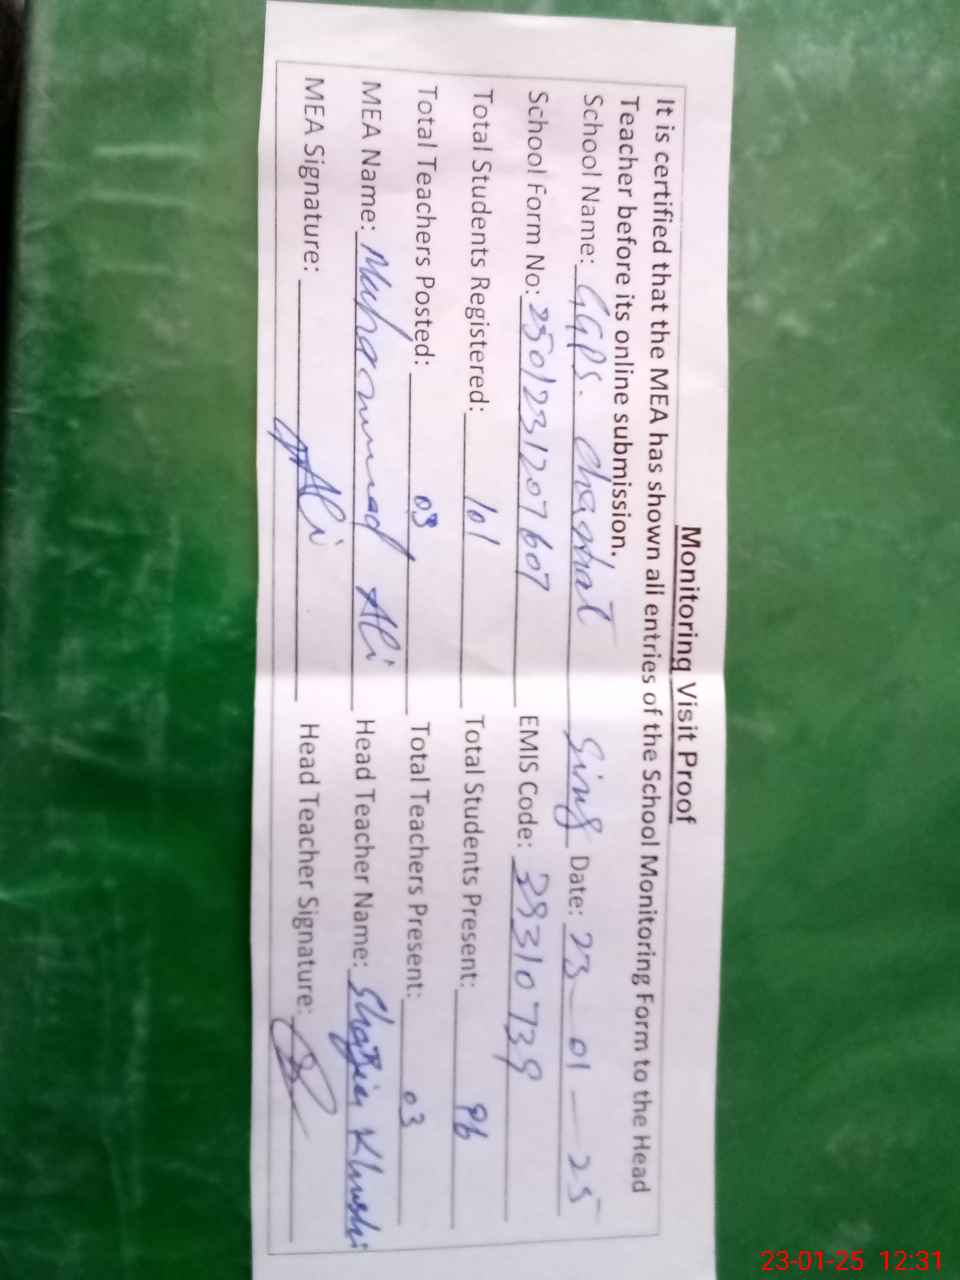 Monitoring Visit Proof
It is certified that the MEA has shown all entries of the School Monitoring Form to the Head
Teacher before its online submission.
School Name: GGPS. Chaghat Sing Date: 23-01-25
School Form No: 2501231207607 EMIS Code:
Total Students Registered: 101 Total Students Present: 96
Total Teachers Posted: 03 Total Teachers Present: 03
MEA Name: Muhammad Ali Head Teacher Name: Khushi
MEA Signature: Ali Head Teacher Signature:
23-01-25 12:31